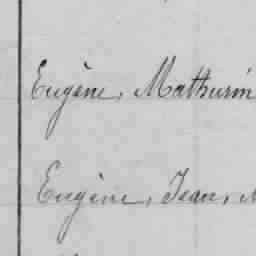 Eugène, Mathurin
Eugène, Jean,